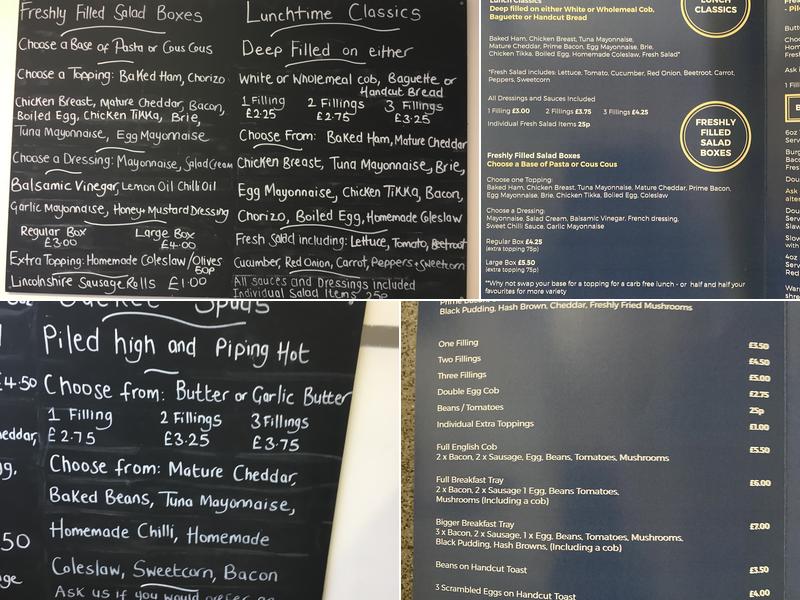 Freshly Filled Salad Boxes
Choose a Base of Pasta or Cous Cous
Choose a Topping: Baked Ham, Chorizo
Chicken Breast, Mature Cheddar, Bacon,
Boiled Egg, Chicken Tikka, Brie,
Tuna Mayonnaise, Egg Mayonnaise
Choose a Dressing: Mayonnaise, Salad Cream
Balsamic Vinegar, Lemon Oil Chilli Oil
Garlic Mayonnaise, Honey+Mustard Dressing
Regular Box Large Box
£3.00 £4.00
Extra Topping: Homemade Coleslaw/Olives
50p
Lincolnshire Sausage Rolls £1.00
Lunchtime Classics
Deep Filled on either
White or Wholemeal cob, Baguette or
Handcut Bread
1 Filling 2 Fillings 3 Fillings
£2.25 £2.75 £3.25
Choose From: Baked Ham, Mature Cheddar
Chicken Breast, Tuna Mayonnaise, Brie,
Egg Mayonnaise, Chicken Tikka, Bacon,
Chorizo, Boiled Egg, Homemade Coleslaw
Fresh Salad including: Lettuce, Tomato, Beetroot
Cucumber, Red Onion, Carrot, Peppers+Sweetcorn
All sauces and Dressings included
Individual Salad Items 25p
Lunch Classics
Deep filled on either White or Wholemeal Cob,
Baguette or Handcut Bread
LUNCH
CLASSICS
Baked Ham, Chicken Breast, Tuna Mayonnaise,
Mature Cheddar, Prime Bacon, Egg Mayonnaise, Brie,
Chicken Tikka, Boiled Egg, Homemade Coleslaw, Fresh Salad*
*Fresh Salad includes: Lettuce, Tomato, Cucumber, Red Onion, Beetroot, Carrot,
Peppers, Sweetcorn
All Dressings and Sauces Included
1 Filling £3.00 2 Fillings £3.75 3 Fillings £4.25
Individual Fresh Salad Items 25p
FRESHLY
FILLED
SALAD
BOXES
Freshly Filled Salad Boxes
Choose a Base of Pasta or Cous Cous
Choose one Topping:
Baked Ham, Chicken Breast, Tuna Mayonnaise, Mature Cheddar, Prime Bacon,
Egg Mayonnaise, Brie, Chicken Tikka, Boiled Egg, Coleslaw
Choose a Dressing:
Mayonnaise, Salad Cream, Balsamic Vinegar, French dressing,
Sweet Chilli Sauce, Garlic Mayonnaise
Regular Box £4.25
(extra topping 75p)
Large Box £5.50
(extra topping 75p)
**Why not swap your base for a topping for a carb free lunch - or half and half your
favourites for more variety
1 Filli
6oz
Serv
Ask
Slow
with
4oz
Serv
Spuds
Piled high and Piping Hot
£4.50 Choose from: Butter or Garlic Butter
1 Filling 2 Fillings 3 Fillings
£2.75 £3.25 £3.75
Choose from: Mature Cheddar,
Baked Beans, Tuna Mayonnaise,
Homemade Chilli, Homemade
Coleslaw, Sweetcorn, Bacon
Ask us if you would prefer
Black Pudding, Hash Brown, Cheddar, Freshly Fried Mushrooms
One Filling £3.50
Two Fillings £4.50
Three Fillings £5.00
Double Egg Cob £2.75
Beans / Tomatoes 25p
Individual Extra Toppings £1.00
Full English Cob £5.50
2 x Bacon, 2 x Sausage, Egg, Beans, Tomatoes, Mushrooms
Full Breakfast Tray £6.00
2 x Bacon, 2 x Sausage 1 Egg, Beans Tomatoes,
Mushrooms (Including a cob)
Bigger Breakfast Tray £7.00
3 x Bacon, 2 x Sausage, 1 x Egg, Beans, Tomatoes, Mushrooms,
Black Pudding, Hash Browns, (Including a cob)
Beans on Handcut Toast £3.50
3 Scrambled Eggs on Handcut Toast £4.00